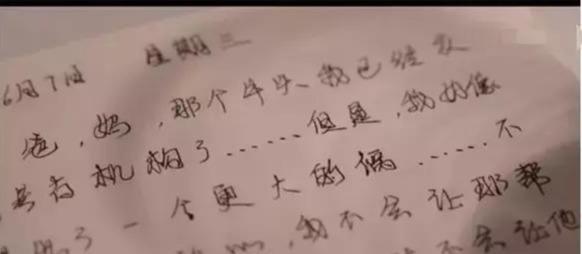 6月7日 星期三
爸,妈,那个牛头,我已经
有机构了……但是,我好像
了一个更大的祸……不
,我不会让那帮
不会让他